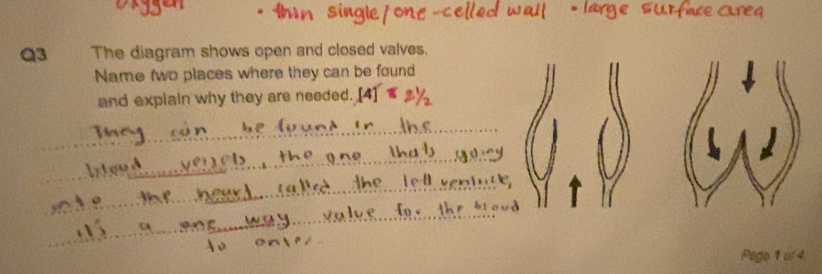 oxygen • thin single/one-celled wall • large surface area
Q3 The diagram shows open and closed valves.
Name two places where they can be found
and explain why they are needed. [4] 2½
They can be found in the
blood vessels, the one thats going
into the heart called the left ventricle,
it's a one way valve for the blood
to enter.
Page 1 of 4